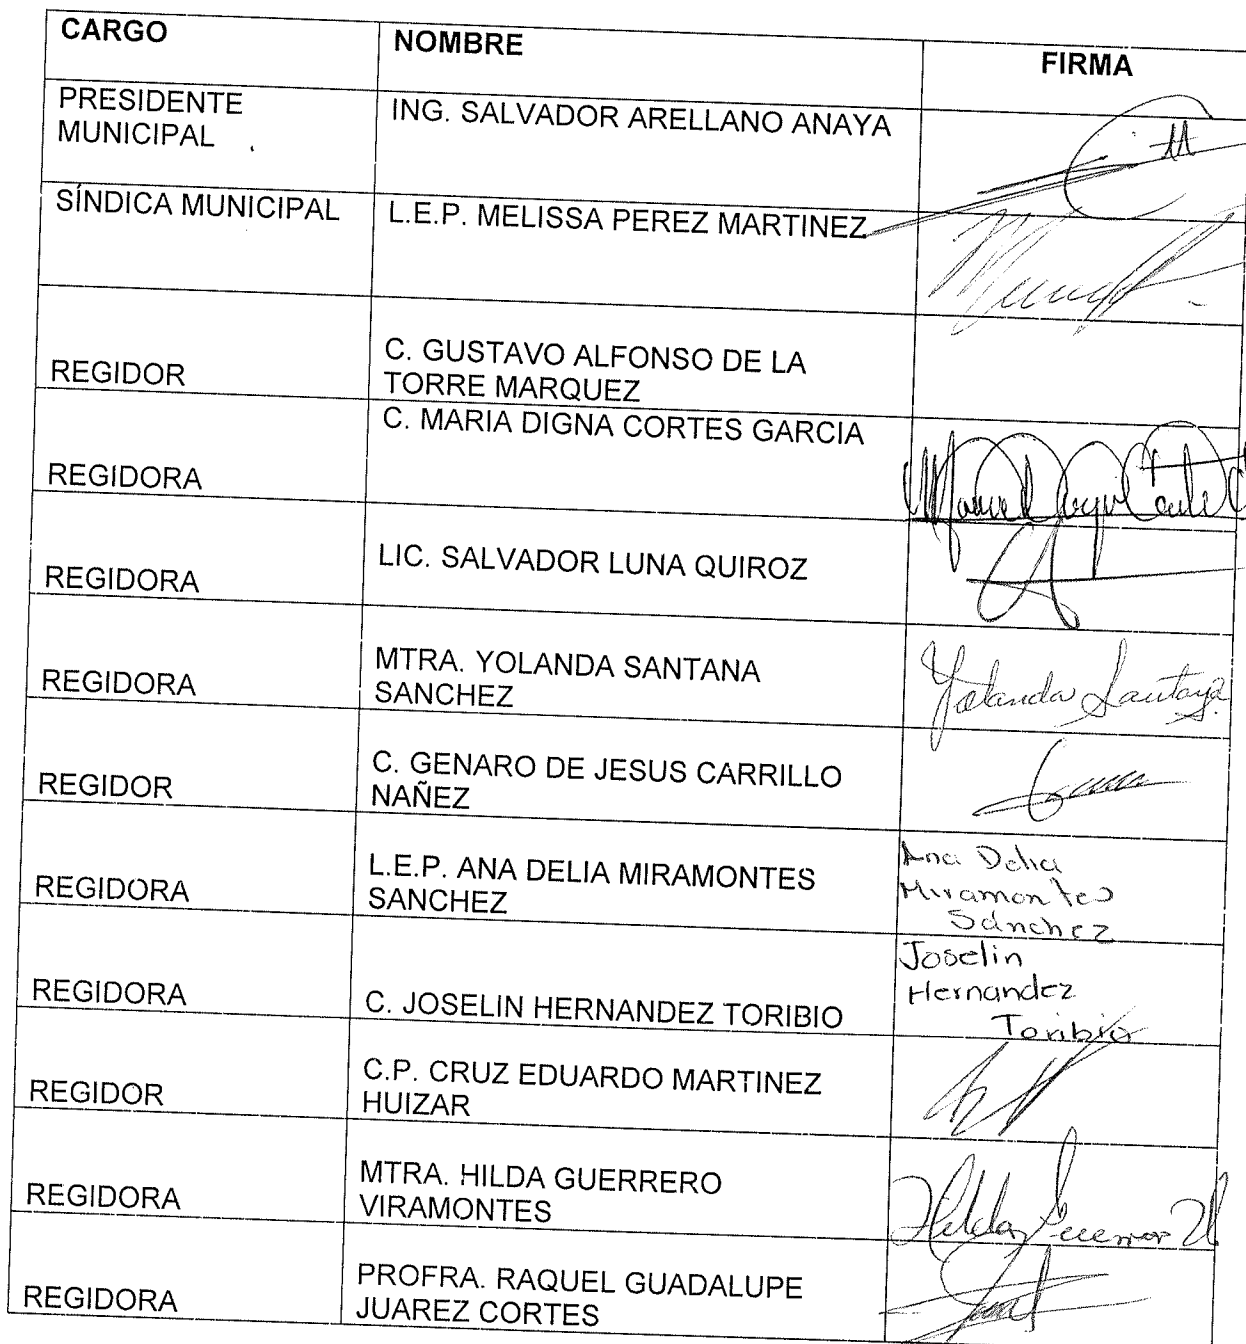 CARGO
NOMBRE
FIRMA
PRESIDENTE
MUNICIPAL
ING. SALVADOR ARELLANO ANAYA
SÍNDICA MUNICIPAL
L.E.P. MELISSA PEREZ MARTINEZ
REGIDOR
C. GUSTAVO ALFONSO DE LA
TORRE MARQUEZ
REGIDORA
C. MARIA DIGNA CORTES GARCIA
REGIDORA
LIC. SALVADOR LUNA QUIROZ
REGIDORA
MTRA. YOLANDA SANTANA
SANCHEZ
Yolanda Santana
REGIDOR
C. GENARO DE JESUS CARRILLO
NAÑEZ
REGIDORA
L.E.P. ANA DELIA MIRAMONTES
SANCHEZ
Ana Delia
Miramontes
Sánchez
REGIDORA
C. JOSELIN HERNANDEZ TORIBIO
Joselin
Hernandez
Toribio
REGIDOR
C.P. CRUZ EDUARDO MARTINEZ
HUIZAR
REGIDORA
MTRA. HILDA GUERRERO
VIRAMONTES
Hilda Guerrero V
REGIDORA
PROFRA. RAQUEL GUADALUPE
JUAREZ CORTES